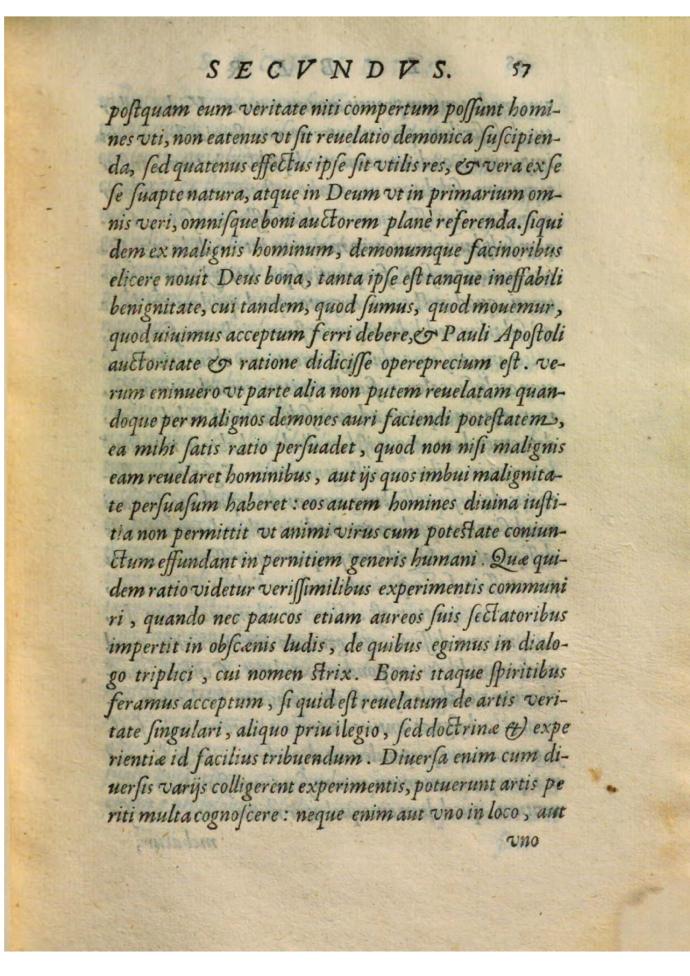 SECVNDVS. 57
poſtquam eum veritate niti compertum poſſunt homi-
nes vti, non eatenus vt ſit reuelatio demonica ſuſcipien-
da, ſed quatenus effectus ipſe ſit vtilis res, & vera ex ſe
ſe ſuapte natura, atque in Deum vt in primarium om-
nis veri, omniſque boni auctorem planè referenda. ſiqui
dem ex malignis hominum, demonumque facinoribus
elicere nouit Deus bona, tanta ipſe est tanque ineffabili
benignitate, cui tandem, quod ſumus, quod mouemur,
quod uiuimus acceptum ferri debere, & Pauli Apoſtoli
auctoritate & ratione didiciſſe opereprecium eſt. ve-
rum eninuero vt parte alia non putem reuelatam quan-
doque per malignos demones auri faciendi poteſtatem,
ea mihi ſatis ratio perſuadet, quod non niſi malignis
eam reuelaret hominibus, aut ijs quos imbui malignita-
te perſuaſum haberet: eos autem homines diuina iuſti-
tia non permittit vt animi virus cum poteſtate coniun-
ctum effundant in pernitiem generis humani. Quæ qui-
dem ratio videtur veriſſimilibus experimentis communi
ri, quando nec paucos etiam aureos ſuis ſectatoribus
impertit in obſcænis ludis, de quibus egimus in dialo-
go triplici, cui nomen ſtrix. Bonis itaque ſpiritibus
feramus acceptum, ſi quid eſt reuelatum de artis veri-
tate ſingulari, aliquo priuilegio, ſed doctrinæ & expe
rientiæ id facilius tribuendum. Diuerſa enim cum di-
uerſis varijs colligerent experimentis, potuerunt artis pe
riti multa cognoſcere: neque enim aut vno in loco, aut
vno